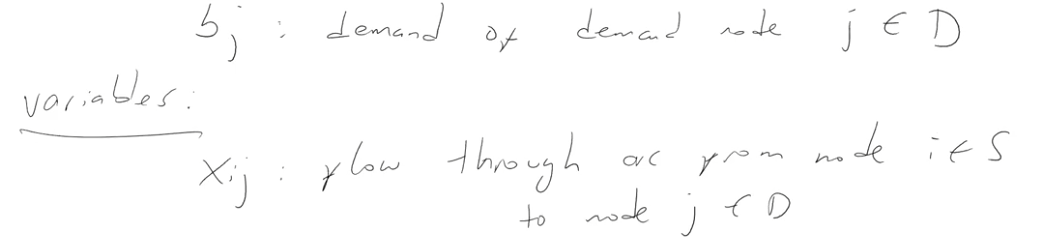 bj : demand of demand node j ∈ D
variables:
Xij : flow through arc from node i ∈ S
to node j ∈ D